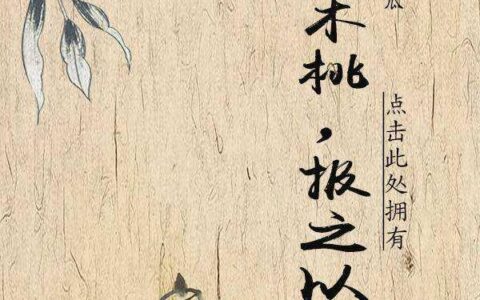 瓜
点击此处拥有
木桃，报之以